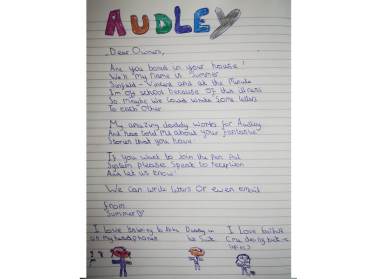 AUDLEY
Dear Owners,
Are you bored in your house!
Well my name is Summer
and at the minute
I'm of school because of this illness
So maybe we could write some letters
to each other
My amazing daddy works for Audley
And has told me about your fantastic
Stories that you have
If you want to join the Pen Pal
System please speak to reception
And let us know!
We can write letters Or even email
from
Summer♡
I love listening to
on my headphones
Daddy in
his Suit
I love ballet